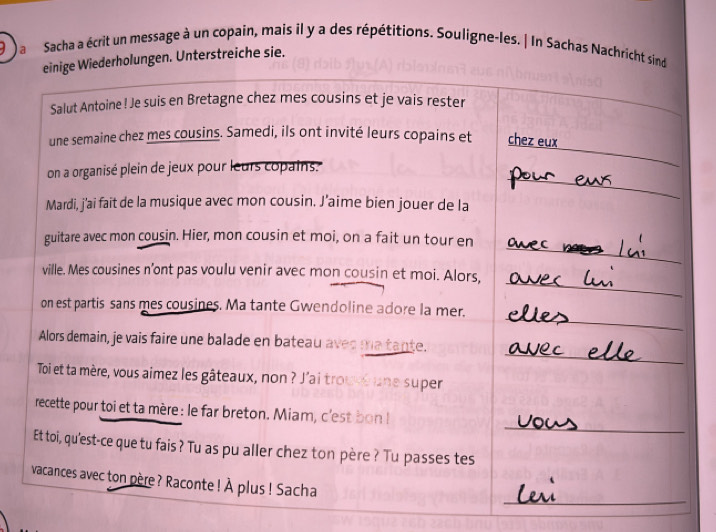 9 a Sacha a écrit un message à un copain, mais il y a des répétitions. Souligne-les. | In Sachas Nachricht sind
einige Wiederholungen. Unterstreiche sie.
Salut Antoine ! Je suis en Bretagne chez mes cousins et je vais rester
une semaine chez mes cousins. Samedi, ils ont invité leurs copains et chez eux
on a organisé plein de jeux pour leurs copains. pour eux
Mardi, j'ai fait de la musique avec mon cousin. J'aime bien jouer de la
guitare avec mon cousin. Hier, mon cousin et moi, on a fait un tour en avec lui
ville. Mes cousines n'ont pas voulu venir avec mon cousin et moi. Alors, avec lui
on est partis sans mes cousines. Ma tante Gwendoline adore la mer. elles
Alors demain, je vais faire une balade en bateau avec ma tante. avec elle
Toi et ta mère, vous aimez les gâteaux, non ? J'ai trouvé une super
recette pour toi et ta mère : le far breton. Miam, c'est bon ! vous
Et toi, qu'est-ce que tu fais ? Tu as pu aller chez ton père ? Tu passes tes
vacances avec ton père ? Raconte ! À plus ! Sacha lui